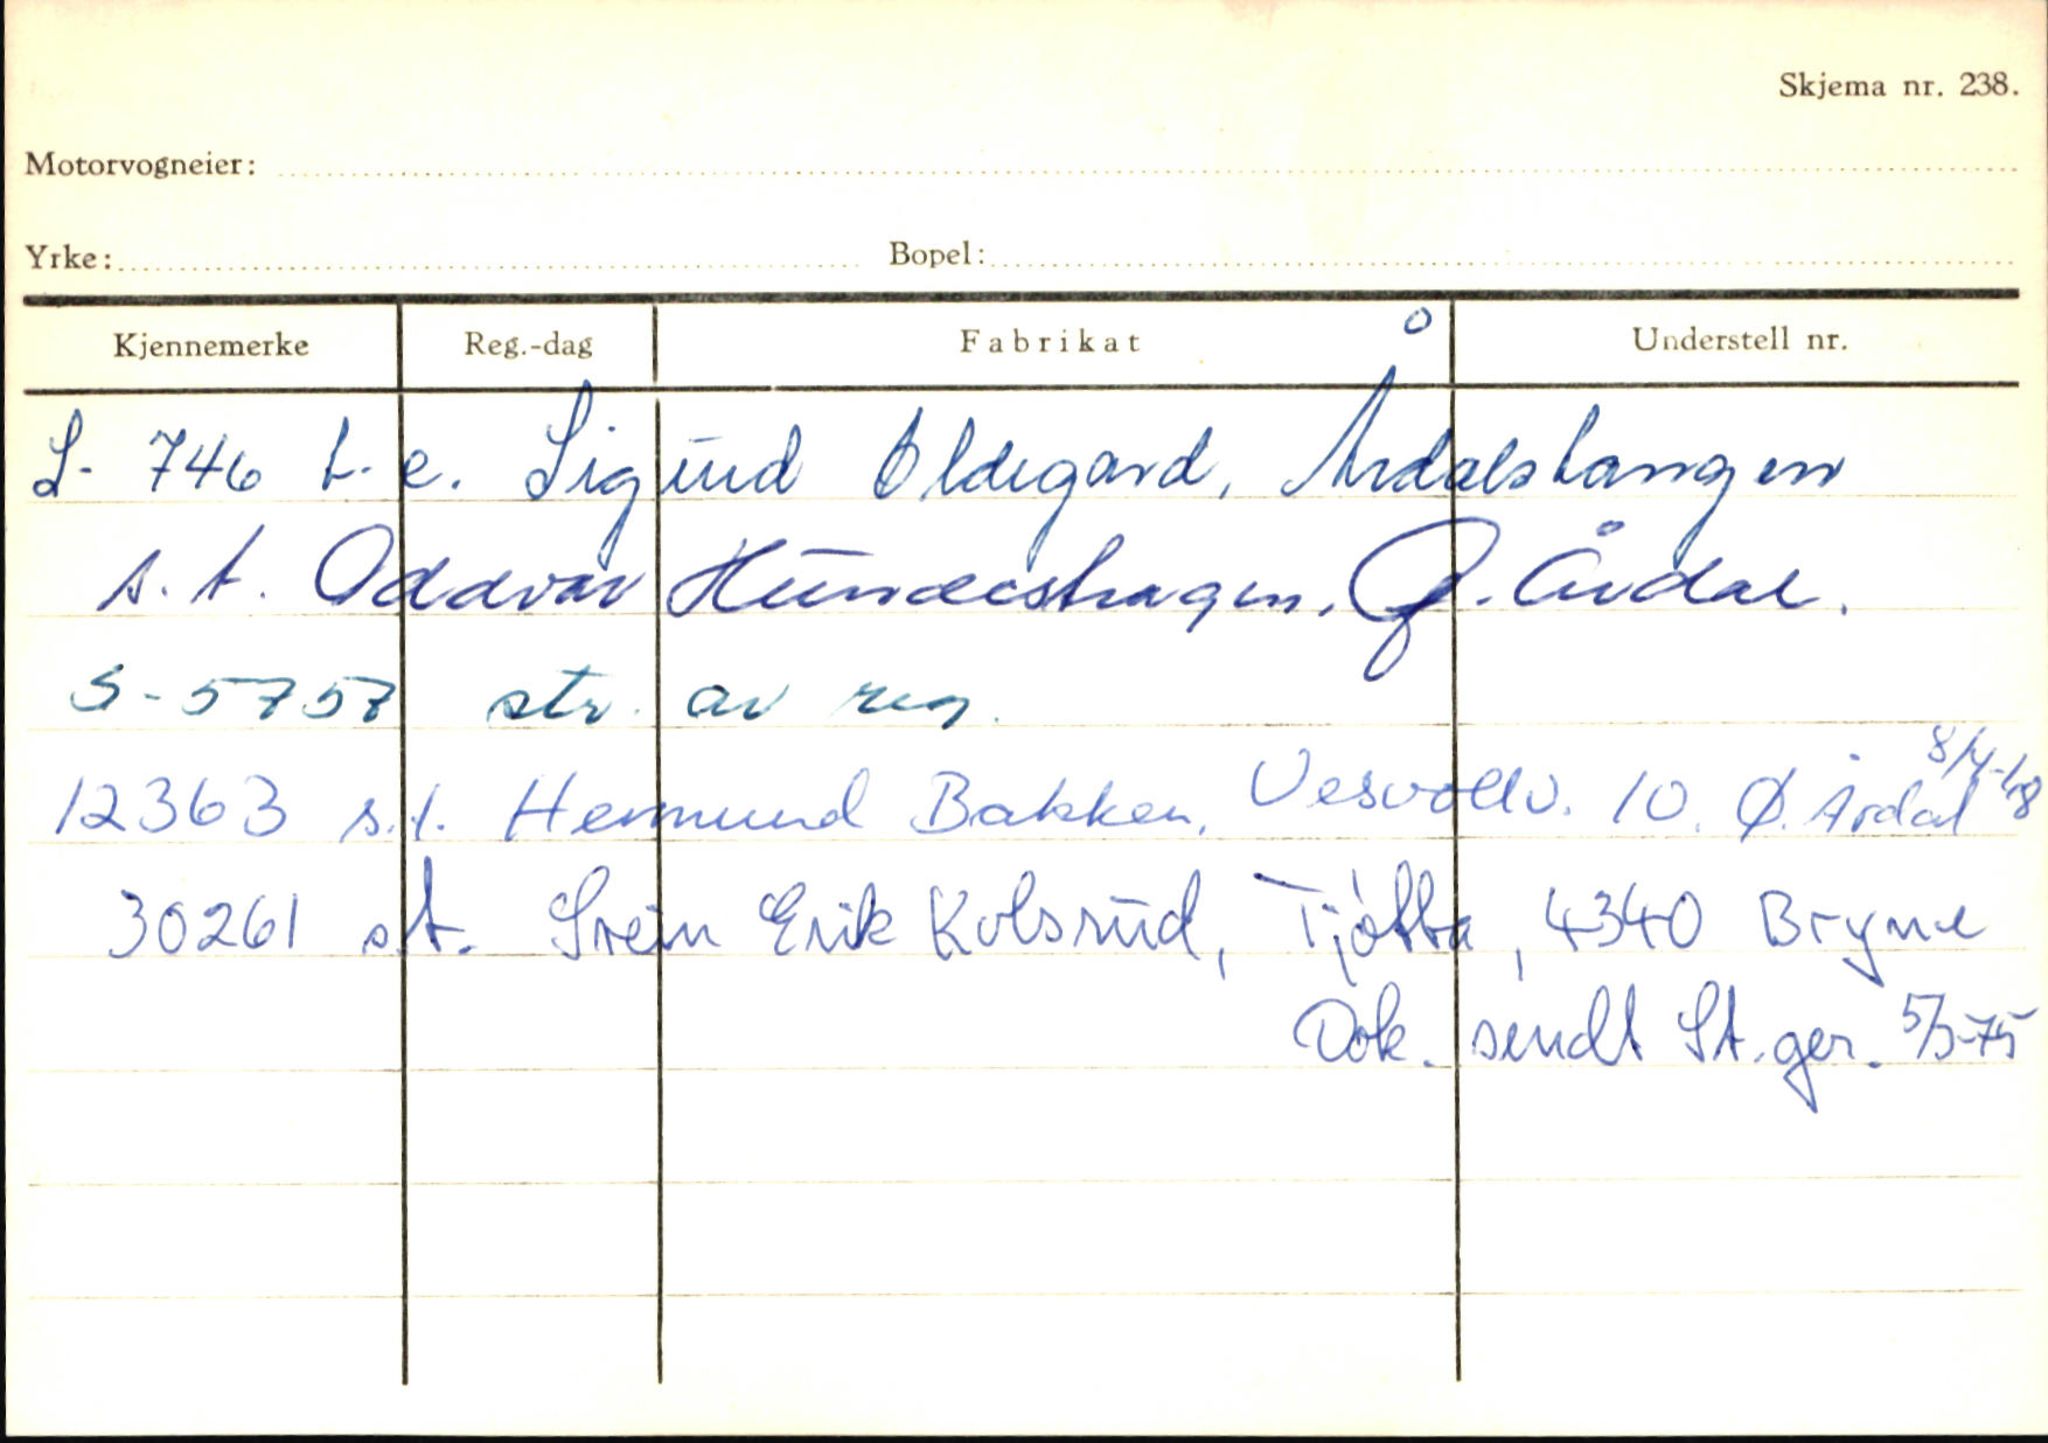 Skjema nr. 238.
Motorvogneier:
Yrke: Bopel:
Kjennemerke Reg.-dag Fabrikat Understell nr.
S- 746 t. e. Sigund Oldegard, Årdalstangen
s. t. Oddvar Hundeshagen, Ø. Årdal.
S-5757 str. av reg.
12363 s.t. Hermund Bakken, Vesvollv. 10. Ø. Årdal 8/4-68
30261 s.t. Svein Erik Kolsrud, Tjøtta, 4340 Bryne
Dok. sendt St.ger. 5/3-75